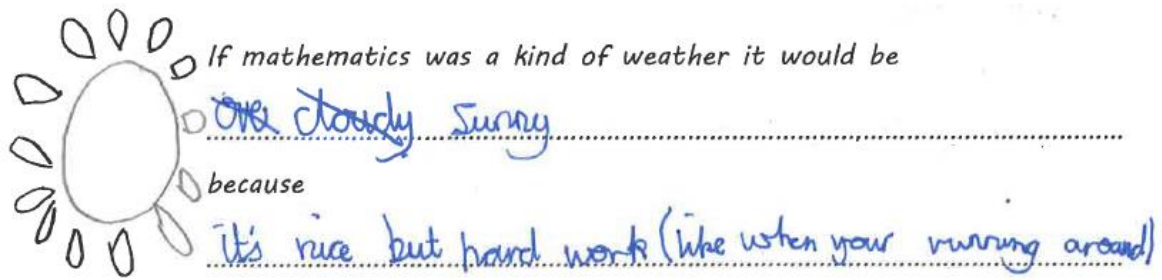 If mathematics was a kind of weather it would be
Over cloudy Sunny
because
it's nice but hard work (like when your running around)